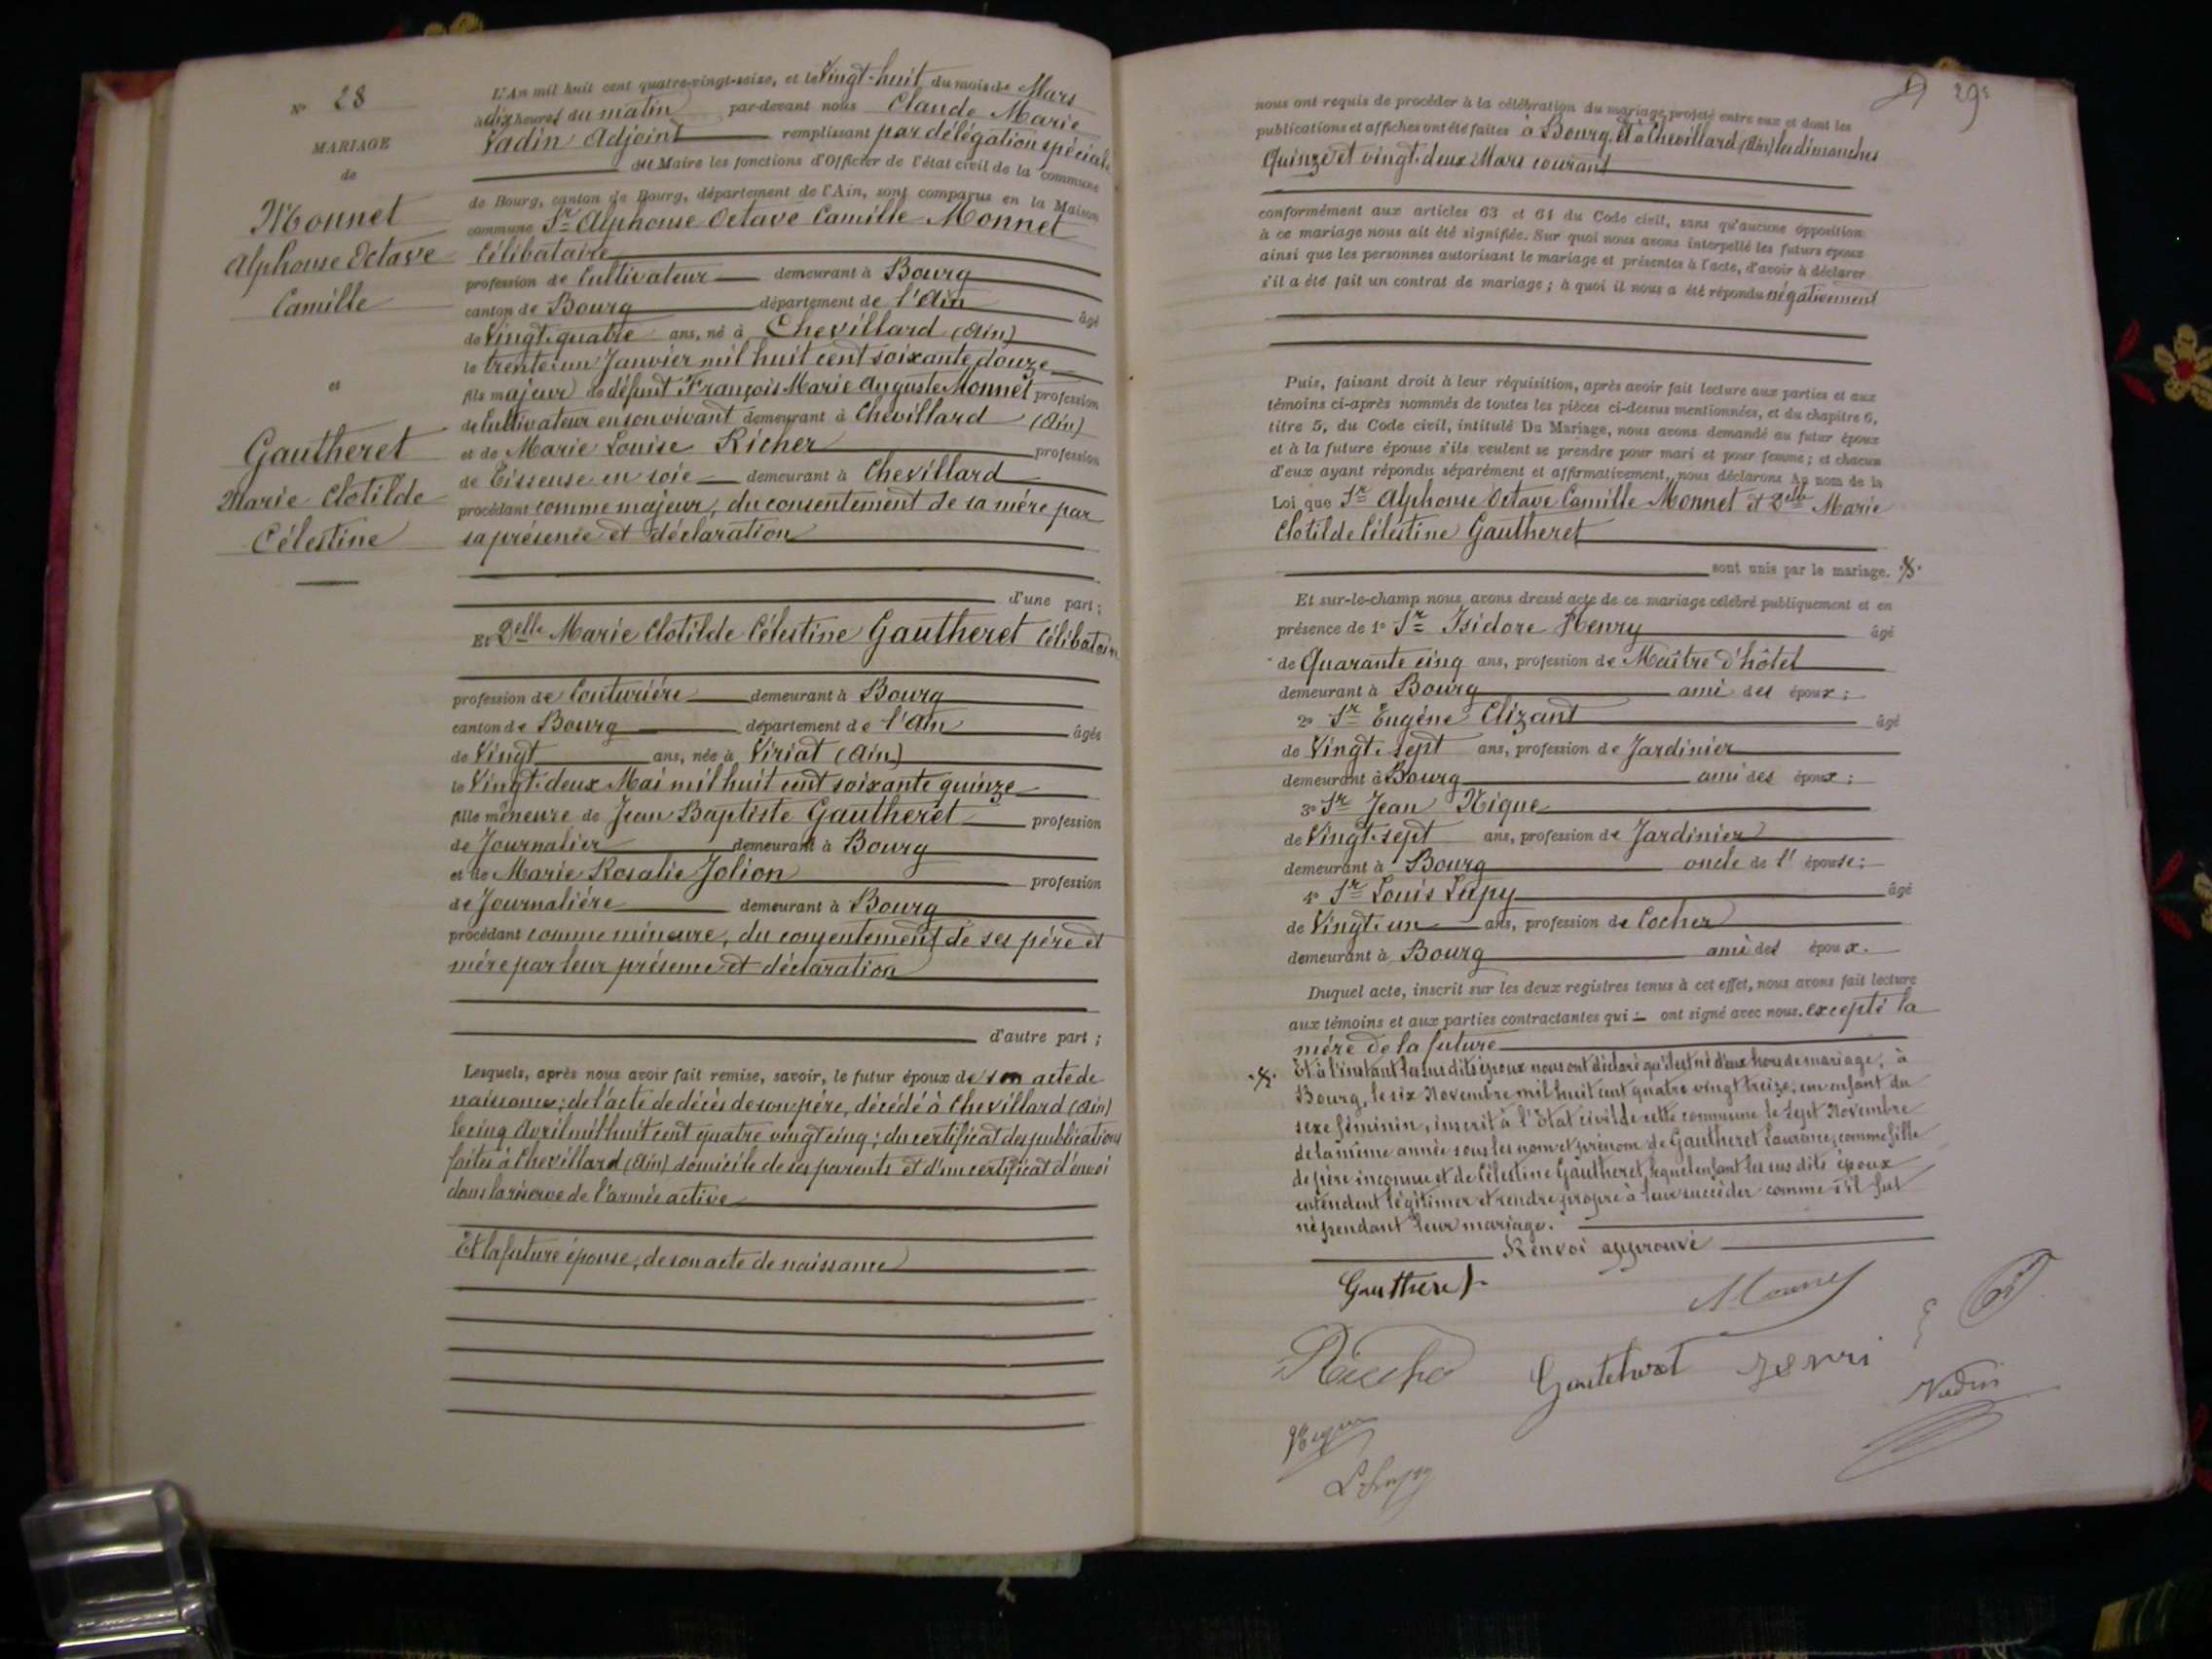 N° 28
MARIAGE
de
Monnet
Alphonse Octave
Camille
et
Gautheret
Marie Clotilde
Célestine
L'An mil huit cent quatre-vingt-seize, et le Vingt-huit du mois de Mars
à dix heures du matin par-devant nous Claude Marie
Vadin Adjoint remplissant par délégation spéciale
du Maire les fonctions d'Officier de l'état civil de la commune
de Bourg, canton de Bourg, département de l'Ain, sont comparus en la Maison
commune Sr Alphonse Octave Camille Monnet
Célibataire
profession de Cultivateur demeurant à Bourg
canton de Bourg département de l'Ain âgé
de Vingt-quatre ans, né à Chevillard (Ain)
le trente-un Janvier mil huit cent soixante douze
fils majeur de défunt François Marie Auguste Monnet profession
de Cultivateur en son vivant demeurant à Chevillard (Ain)
et de Marie Louise Richer profession
de Tisseuse en soie demeurant à Chevillard
procédant comme majeur, du consentement de sa mère par
sa présence et déclaration
d'une part ;
Et Delle Marie Clotilde Célestine Gautheret Célibataire
profession de Couturière demeurant à Bourg
canton de Bourg département de l'Ain âgée
de Vingt ans, née à Viriat (Ain)
le Vingt-deux Mai mil huit cent soixante quinze
fille mineure de Jean Baptiste Gautheret profession
de Journalier demeurant à Bourg
et de Marie Rosalie Jolion profession
de Journalière demeurant à Bourg
procédant comme mineure, du consentement de ses père et
mère par leur présence et déclaration
d'autre part ;
Lesquels, après nous avoir fait remise, savoir, le futur époux de son acte de
naissance ; de l'acte de décès de son père, décédé à Chevillard (Ain)
le cinq Avril mil huit cent quatre vingt cinq ; du certificat des publications
faites à Chevillard (Ain) domicile de ses parents et d'un certificat d'envoi
dans la réserve de l'armée active
Et la future épouse, de son acte de naissance
29e
nous ont requis de procéder à la célébration du mariage projeté entre eux et dont les
publications et affiches ont été faites à Bourg, et à Chevillard (Ain) les dimanches
Quinze et vingt-deux Mars courant
conformément aux articles 63 et 64 du Code civil, sans qu'aucune opposition
à ce mariage nous ait été signifiée. Sur quoi nous avons interpellé les futurs époux
ainsi que les personnes autorisant le mariage et présentes à l'acte, d'avoir à déclarer
s'il a été fait un contrat de mariage ; à quoi il nous a été répondu négativement
Puis, faisant droit à leur réquisition, après avoir fait lecture aux parties et aux
témoins ci-après nommés de toutes les pièces ci-dessus mentionnées, et du chapitre 6,
titre 5, du Code civil, intitulé Du Mariage, nous avons demandé au futur époux
et à la future épouse s'ils veulent se prendre pour mari et pour femme ; et chacun
d'eux ayant répondu séparément et affirmativement, nous déclarons Au nom de la
Loi que Sr Alphonse Octave Camille Monnet et Delle Marie
Clotilde Célestine Gautheret
sont unis par le mariage.
Et sur-le-champ nous avons dressé acte de ce mariage célébré publiquement et en
présence de 1° Sr Isidore Henry âgé
de Quarante cinq ans, profession de Maître d'hôtel
demeurant à Bourg ami des époux ;
2° Sr Eugène Clizant âgé
de Vingt-sept ans, profession de Jardinier
demeurant à Bourg ami des époux ;
3° Sr Jean Nique
de Vingt-sept ans, profession de Jardinier
demeurant à Bourg oncle de l'épouse ;
4° Sr Louis Lapy âgé
de Vingt-un ans, profession de Cocher
demeurant à Bourg ami des époux.
Duquel acte, inscrit sur les deux registres tenus à cet effet, nous avons fait lecture
aux témoins et aux parties contractantes qui ont signé avec nous. excepté la
mère de la future
Et à l'instant les susdits époux nous ont déclaré qu'il est né d'eux hors de mariage, à
Bourg, le six Novembre mil huit cent quatre vingt treize, un enfant du
sexe féminin, inscrit à l'Etat civil de cette commune le sept Novembre
de la même année sous les nom et prénom de Gautheret Laurence, comme fille
de père inconnu et de Célestine Gautheret, lequel enfant les sus dits époux
entendent légitimer et rendre propre à leur succéder comme s'il fut
né pendant leur mariage.
Renvoi approuvé
Gautheret
Monnet
Gautheret
Vadin